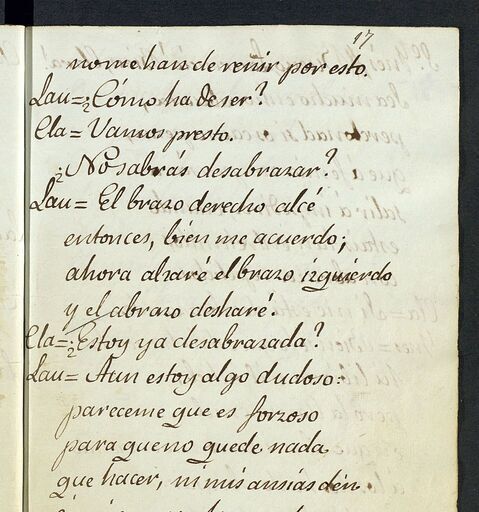 17
no me han de renir por esto.
Lau= ¿Cómo ha de ser?
Cla= Vamos presto.
¿No sabrás desabrazar?
Lau= El brazo derecho alcé
entonces, bien me acuerdo;
ahora alzaré el brazo izquierdo
y el abrazo desharé.
Cla= ¿Estoy ya desabrazada?
Lau= Aun estoy algo dudoso:
pareceme que es forzoso
para que no quede nada
que hacer, ni mis ansias dén